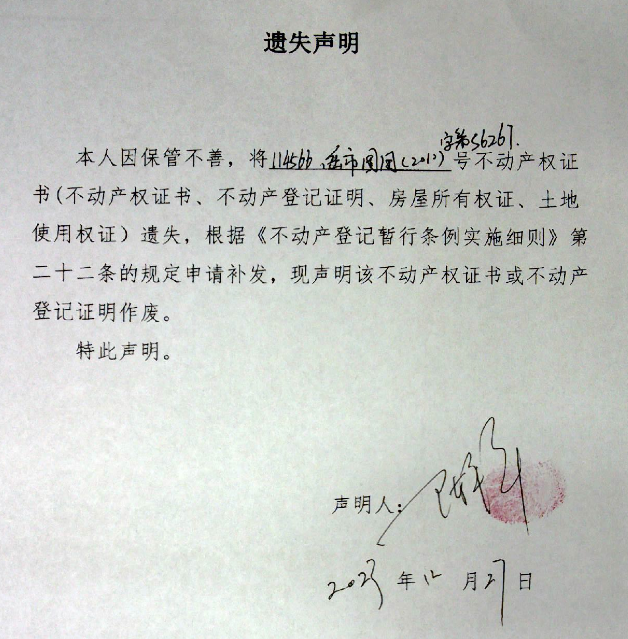 遗失声明
字第56267.
本人因保管不善，将114566 岳市国用(2010)号不动产权证
书(不动产权证书、不动产登记证明、房屋所有权证、土地
使用权证）遗失，根据《不动产登记暂行条例实施细则》第
二十二条的规定申请补发，现声明该不动产权证书或不动产
登记证明作废。
特此声明。
声明人：
2023 年 12 月 27 日